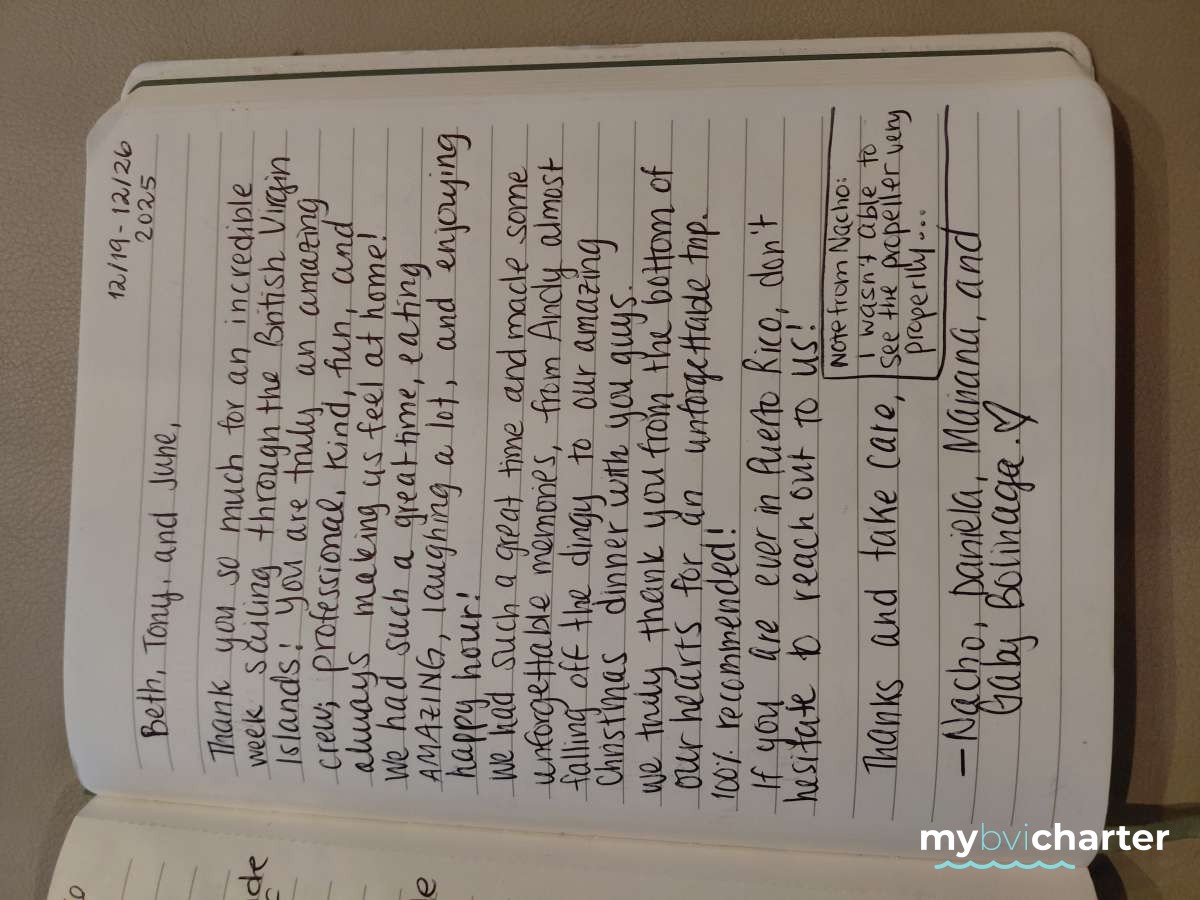 12/19 - 12/26
2025
Beth, Tony, and June,
Thank you so much for an incredible
week sailing through the British Virgin
Islands! You are truly an amazing
crew; professional, kind, fun, and
always making us feel at home!
We had such a great time, eating
AMAZING, laughing a lot, and enjoying
happy hour!
We had such a great time and made some
unforgettable memories, from Andy almost
falling off the dingy to our amazing
Christmas dinner with you guys.
We truly thank you from the bottom of
our hearts for an unforgettable trip.
100% recommended!
If you are ever in Puerto Rico, don't
hesitate to reach out to us!
Thanks and take care,
Note from Nacho:
I wasn't able to
see the propeller very
properlly...
- Nacho, Daniela, Mariana, and
Gaby Bolinaga. ♡
mybvicharter